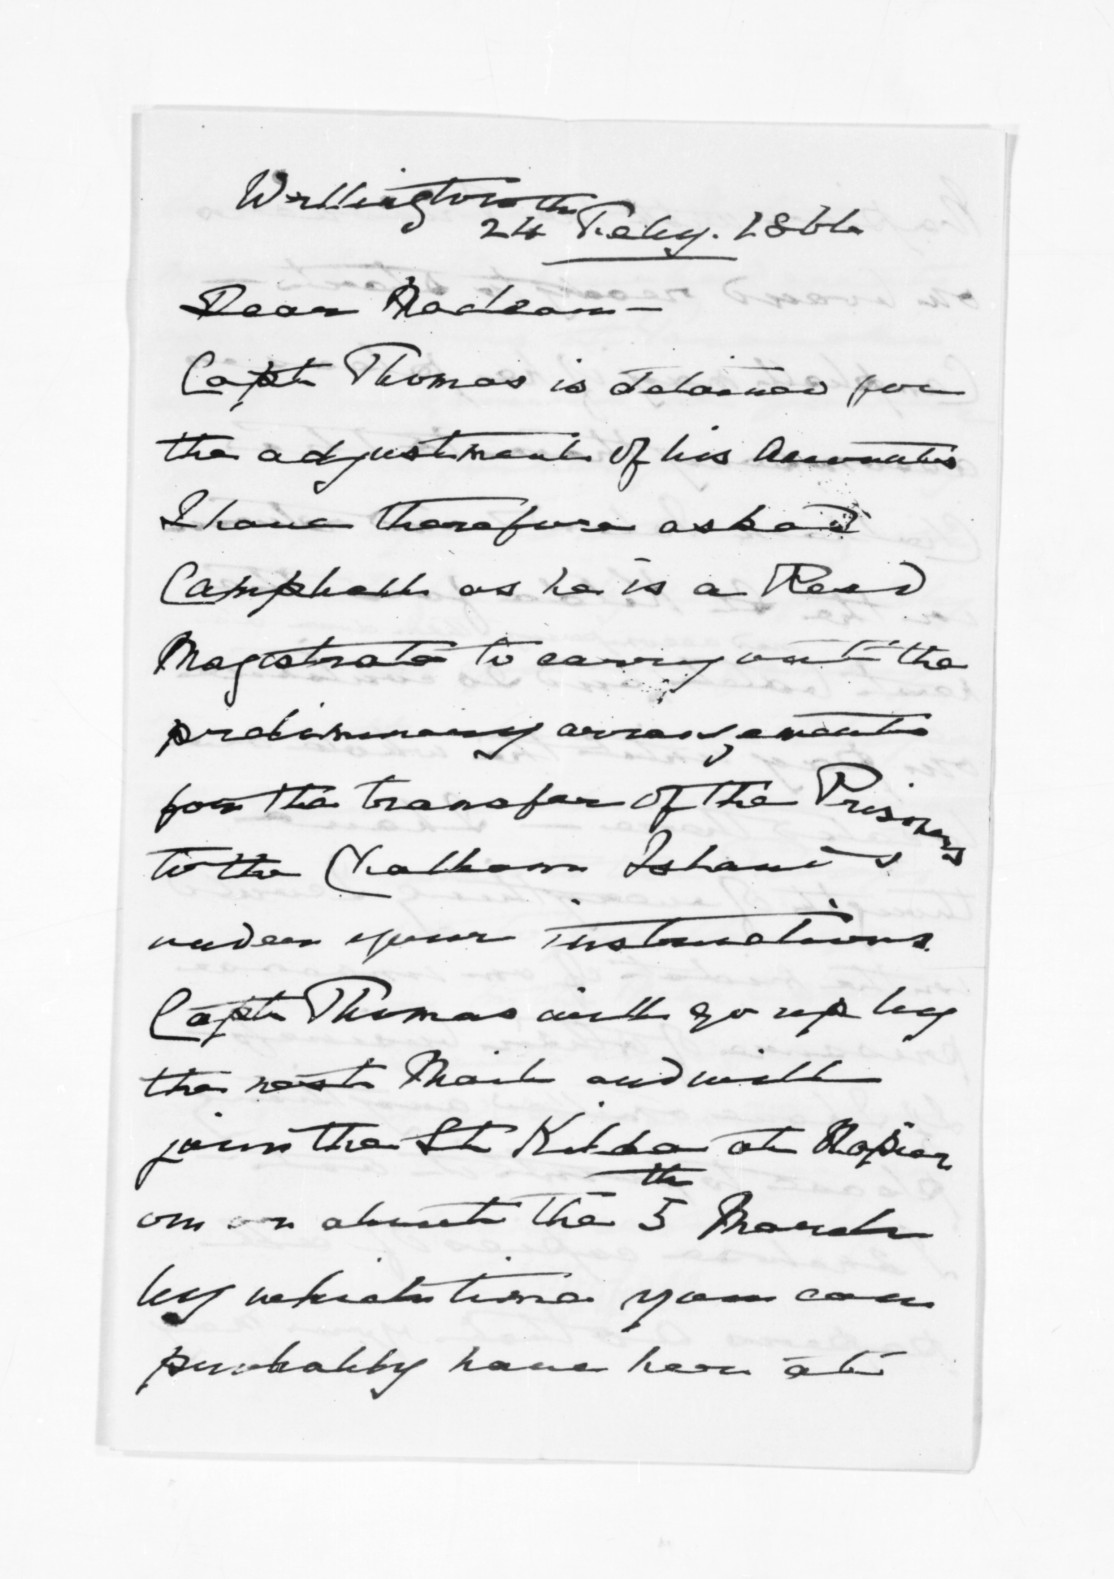 Wellington
24th Feby. 1866
Dear McLean —
Capt Thomas is detained for
the adjustment of his Accounts
I have therefore asked
Campbell as he is a Resd
Magistrate to carry out the
preliminary arrangements
for the transfer of the Prisoners
to the Chatham Islands
under your instructions.
Capt Thomas will go up by
the next Mail and will
join the St Kilda at Napier
on or about the 5th March
by which time you can
probably have her at